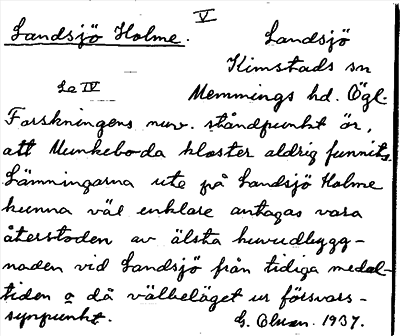 V
Landsjö Holme. Landsjö
Kimstads sn
La IV Memmings hd. Ögl.
Forskningens nuv. ståndpunkt är,
att Munkeboda kloster aldrig funnits.
Lämningarna ute på Landsjö Holme
kunna väl enklare antagas vara
återstoden av älsta huvudbygg-
naden vid Landsjö från tidiga medel-
tiden o då välbeläget ur försvars-
synpunkt. G. Olssn. 1937.